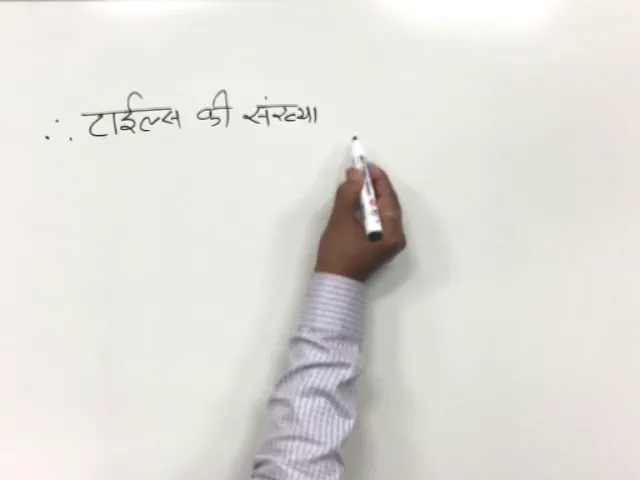 ∴ टाईल्स की संख्या